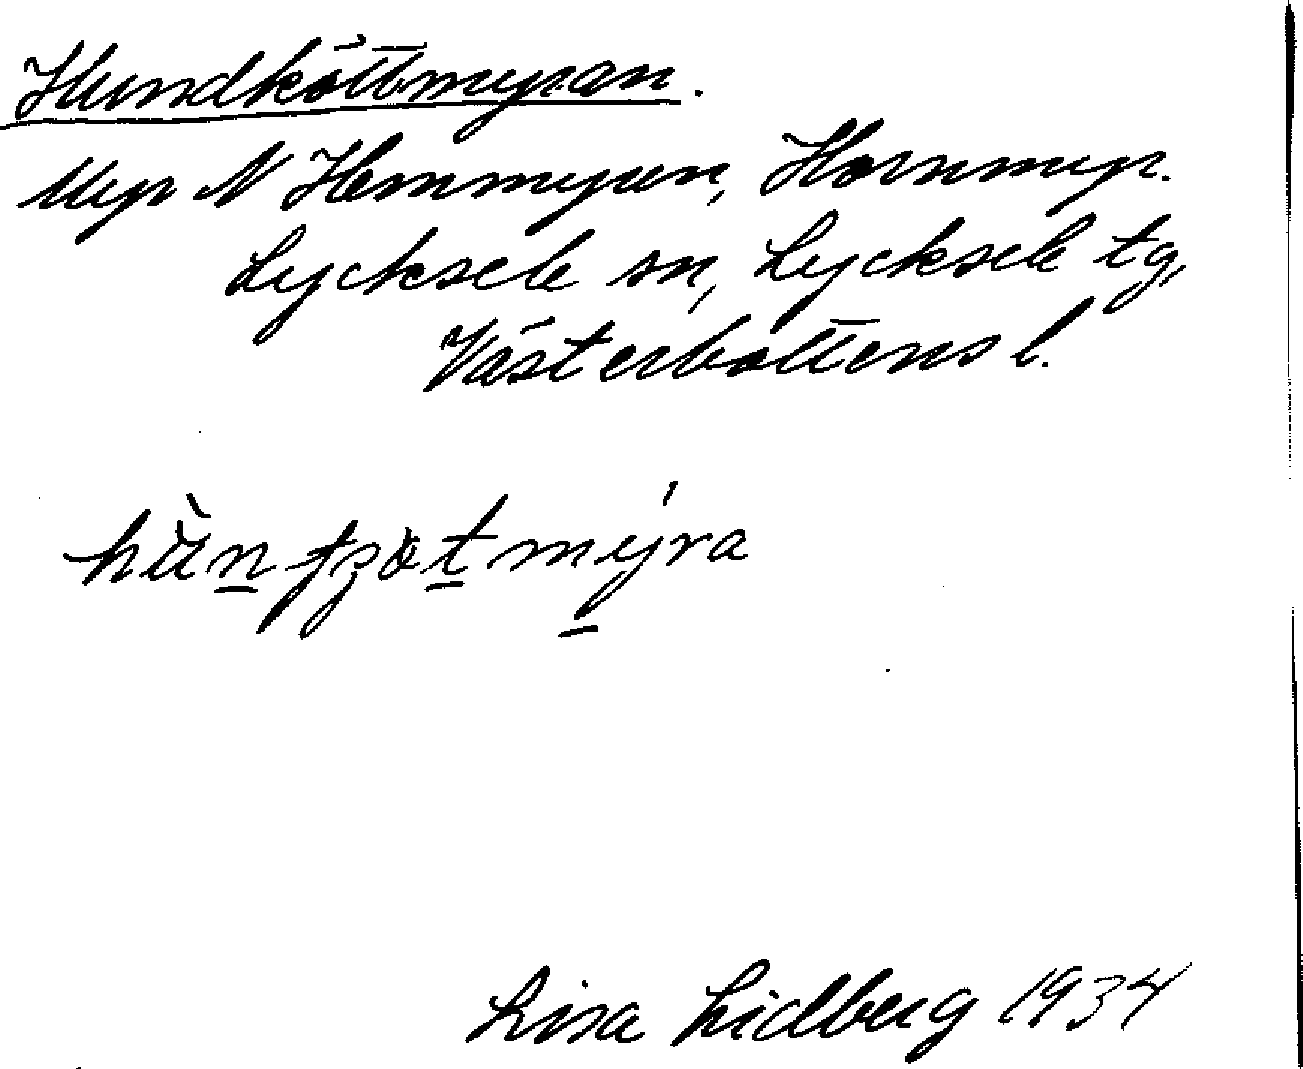 Hundköttmyran.
Myr N Hemmyran, Hornmyr.
Lycksele sn, Lycksele tg,
Västerbottens l.
Lisa Lidberg 1934